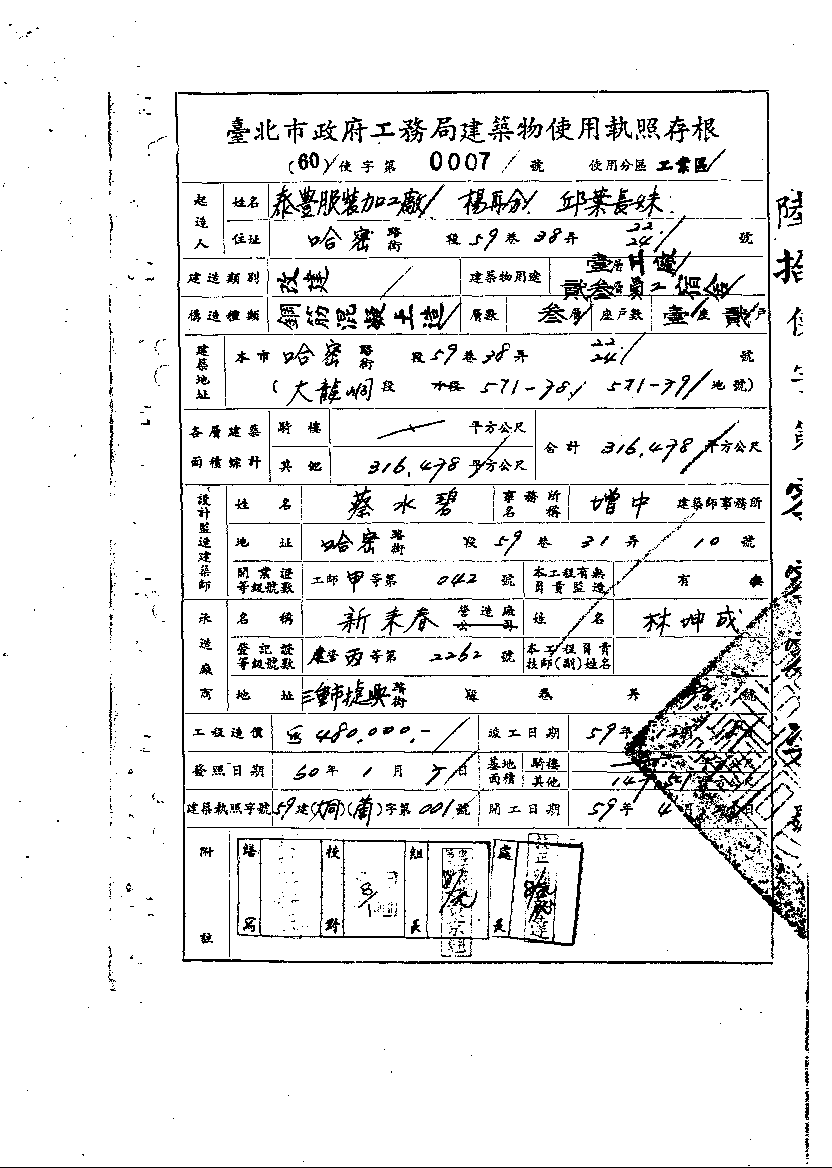 臺北市政府工務局建築物使用執照存根
(60)使字第 0007 號 使用分區 工業區
起造人 姓名 泰豐服裝加工廠 楊再分 邱葉長妹
住址 哈密 路街 段 59 巷 38 弄 22 24 號
建造類別 改建 建築物用途 壹層工廠 貳叁層員工宿舍
構造種類 鋼筋混凝土造 層數 叁層 座戶數 壹座 貳戶
建築地址 本市 哈密 路街 段 59 巷 38 弄 22 24 號
(大龍峒段 小段 571-38 571-39 地號)
各層建築面積綜計 騎樓 平方公尺 合計 316,478 平方公尺
其他 316,478 平方公尺
設計監造建築師 姓名 蔡水碧 事務所名稱 增中 建築師事務所
地址 哈密 路街 段 59 巷 31 弄 10 號
開業證等級號數 工師甲等第 042 號 本工程有無負責監造 有 無
承造廠商 名稱 新來春 營造廠公司 姓名 林坤成
登記證等級號數 營丙等第 2262 號 本工程負責技師(副)姓名
地址 三重市捷興 路街 段 巷 弄 號
工程造價 480,000.- 竣工日期 59年
發照日期 60年1月5日 基地面積 騎樓
其他 平方公尺
建築執照字號 59建(大同)(蘭)字第001號 開工日期 59年4月 日
附註 繕寫 校對 組長 處長